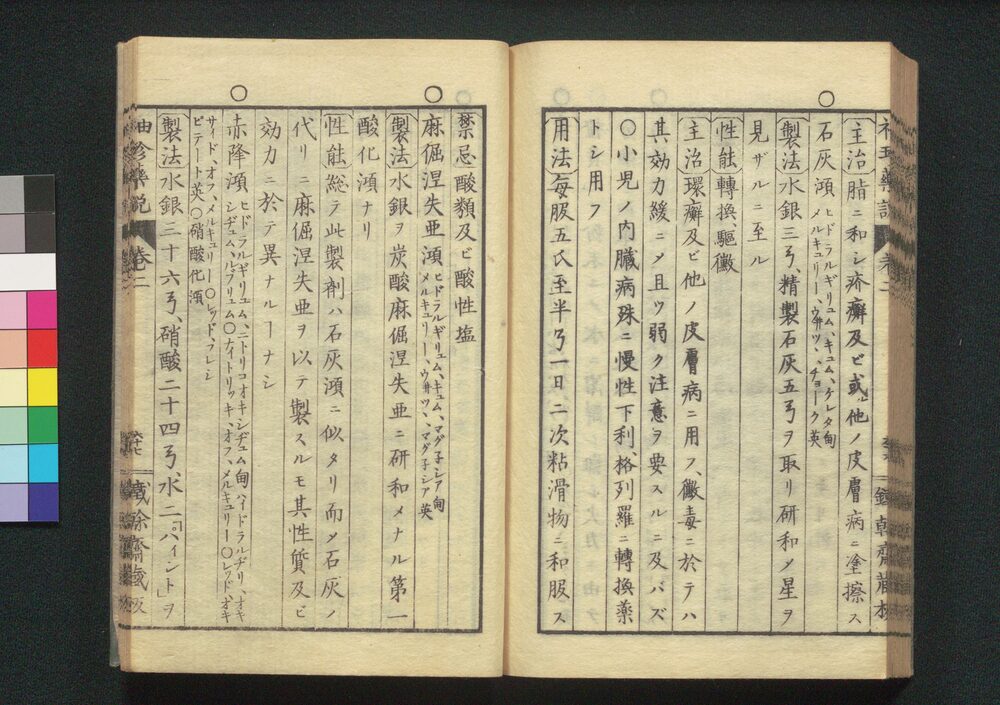 主治脂ニ和シ疥癬及ビ或ル他ノ皮膚病ニ塗擦ス
○
石灰澒 ヒドラルギリュム、キュム、ケレタ甸
メルキュリー、ウ井ツ、チョーク英
製法水銀三弓、精製石灰五弓ヲ取リ研和メ星ヲ
見ザルニ至ル
性能轉換、驅黴
主治環癬及ビ他ノ皮膚病ニ用フ、黴毒ニ於テハ
其効力緩ニメ且ツ弱ク注意ヲ要スルニ及バズ
○小児ノ内臓病殊ニ慢性下利、格列羅ニ轉換薬
トシ用フ
用法毎服五氏至半弓一日二次粘滑物ニ和服ス
禁忌酸類及ビ酸性塩
○
麻倨涅失亜澒 ヒドラルギリュム、キュム、マグ子シア甸
メルキュリー、ウ井ツ、マグ子シア英
製法水銀ヲ炭酸麻倨涅失亜ニ研和メナル第一
酸化澒ナリ
性能総テ此製剤ハ石灰澒ニ似タリ而メ石灰ノ
代リニ麻倨涅失亜ヲ以テ製スルモ其性質及ビ
効力ニ於テ異ナルーナシ
○
赤降澒 ヒドラルギリュム、ニトリコオキシヂュム甸ハイドラルヂリ、オキ
シヂュム、ルブリュム○ナイトリッキ、オフ、メルキュリー○レッド、オキ
サイド、オフ、メルキュリー○レッド、プレシ
ピテート英○硝酸化澒
製法水銀三十六弓、硝酸二十四弓、水二「パイント」ヲ
袖珍藥説 巻二